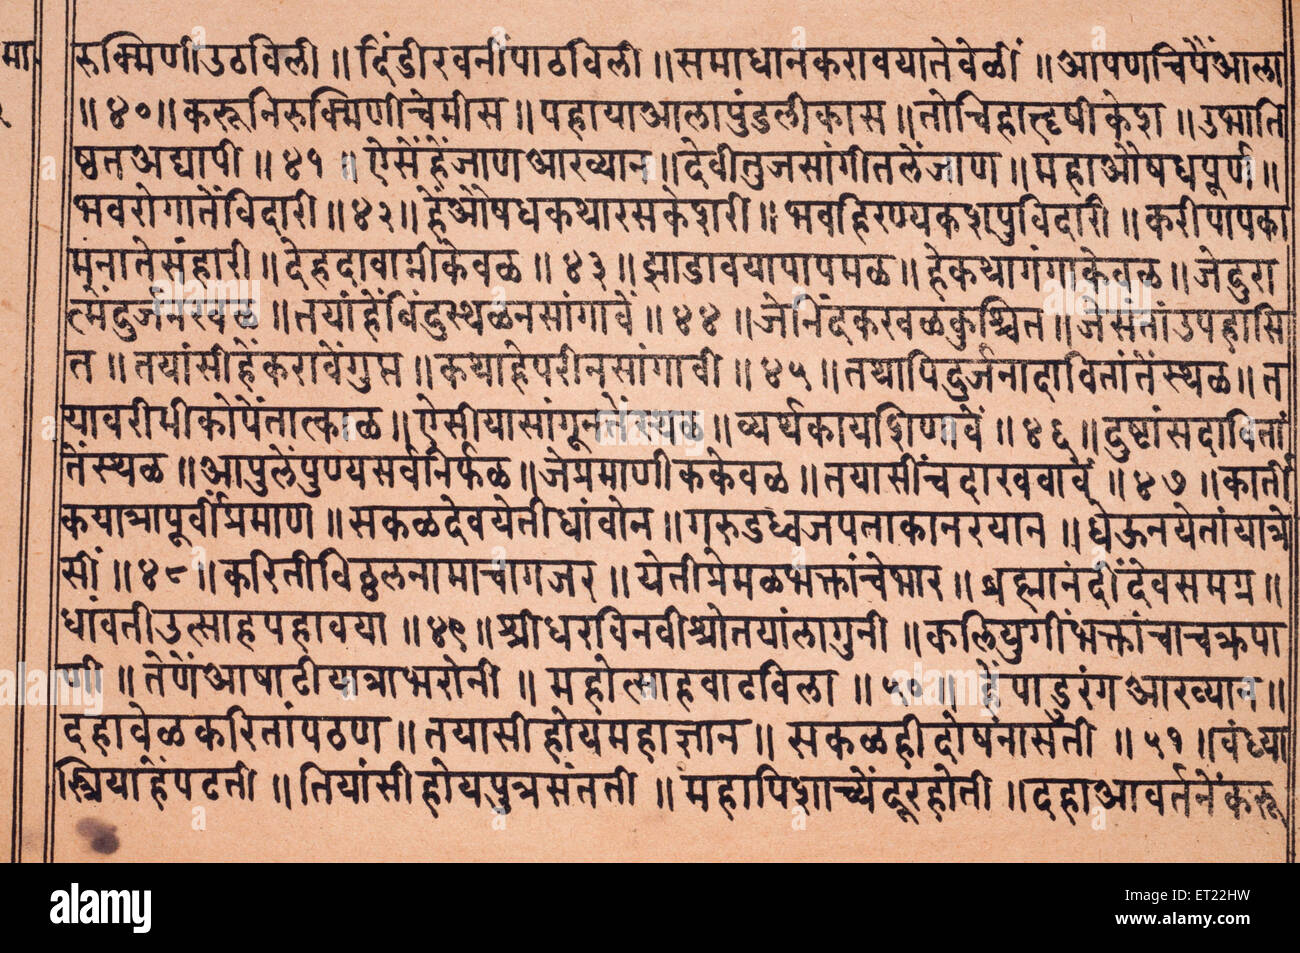 मा
रुक्मिणीउठविली ॥ दिंडीरवनींपाठविली ॥ समाधानकरावयातेवेळीं ॥ आपणचिपैंआला
॥४०॥ करूनिरुक्मिणीचेंमीस ॥ पहायाआलापुंडलीकास ॥ तोचिहाहृषीकेश ॥ उभाति
ष्ठतअद्यापी ॥४१॥ ऐसेंहेंजाणआख्यान ॥ देवीतुजसांगीतलेंजाण ॥ महाऔषधपूर्ण ॥
भवरोगातेंविदारी ॥४२॥ हेंऔषधकथारसकेशरी ॥ भवहिरण्यकशपुविदारी ॥ करीपापका
मुनातेसंहारी ॥ देहदावाग्नीकेवळ ॥४३॥ झाडावयापापमळ ॥ हेकथागंगाकेवळ ॥ जेदुरा
त्मेदुर्जनखळ ॥ तयांहेंबिंदुस्थळनसांगावें ॥४४॥ जेनिंदकखळकुश्चित ॥ जेसंतांउपहासि
त ॥ तयांसीहेंकरावेंगुप्त ॥ कथाहेपरीनसांगावी ॥४५॥ तथापिदुर्जनादावितांतेंस्थळ ॥ त
यावरीमीकोपेंतात्काळ ॥ ऐसीयासांगूनतेंस्थळ ॥ व्यर्थकायशिणावें ॥४६॥ दुष्टांसदावितां
तेंस्थळ ॥ आपुलेंपुण्यसर्वनिर्फळ ॥ जेप्रमाणीककेवळ ॥ तयासींचदाखववावें ॥४७॥ कार्ती
कयात्रापूर्वीप्रमाण ॥ सकळदेवयेतीधांवोन ॥ गरुडध्वजपताकानरयान ॥ घेऊनयेतांयात्रे
सीं ॥४८॥ करितीविठ्ठलनामाचागजर ॥ येतीप्रेमळभक्तांचेभार ॥ ब्रह्मानंदींदेवसमग्र ॥
धांवतीउत्साहपहावया ॥४९॥ श्रीधरविनवीश्रोतयांलागुनी ॥ कलियुगींभक्तांचाचक्रपा
णी ॥ तेणेंआषाढीयात्राभरोनी ॥ महोत्साहवाढविला ॥५०॥ हेंपांडुरंगआख्यान ॥
दहावेळकरितांपठण ॥ तयासीहोयमहाज्ञान ॥ सकळहीदोषनासती ॥५१॥ वंध्या
स्त्रियाहेंपढती ॥ तियांसीहोयपुत्रसंतती ॥ महापिशाच्येंदूरहोती ॥ दहाआवर्तनेंकरू
alamy
www.alamy.com
Image ID: ET22HW